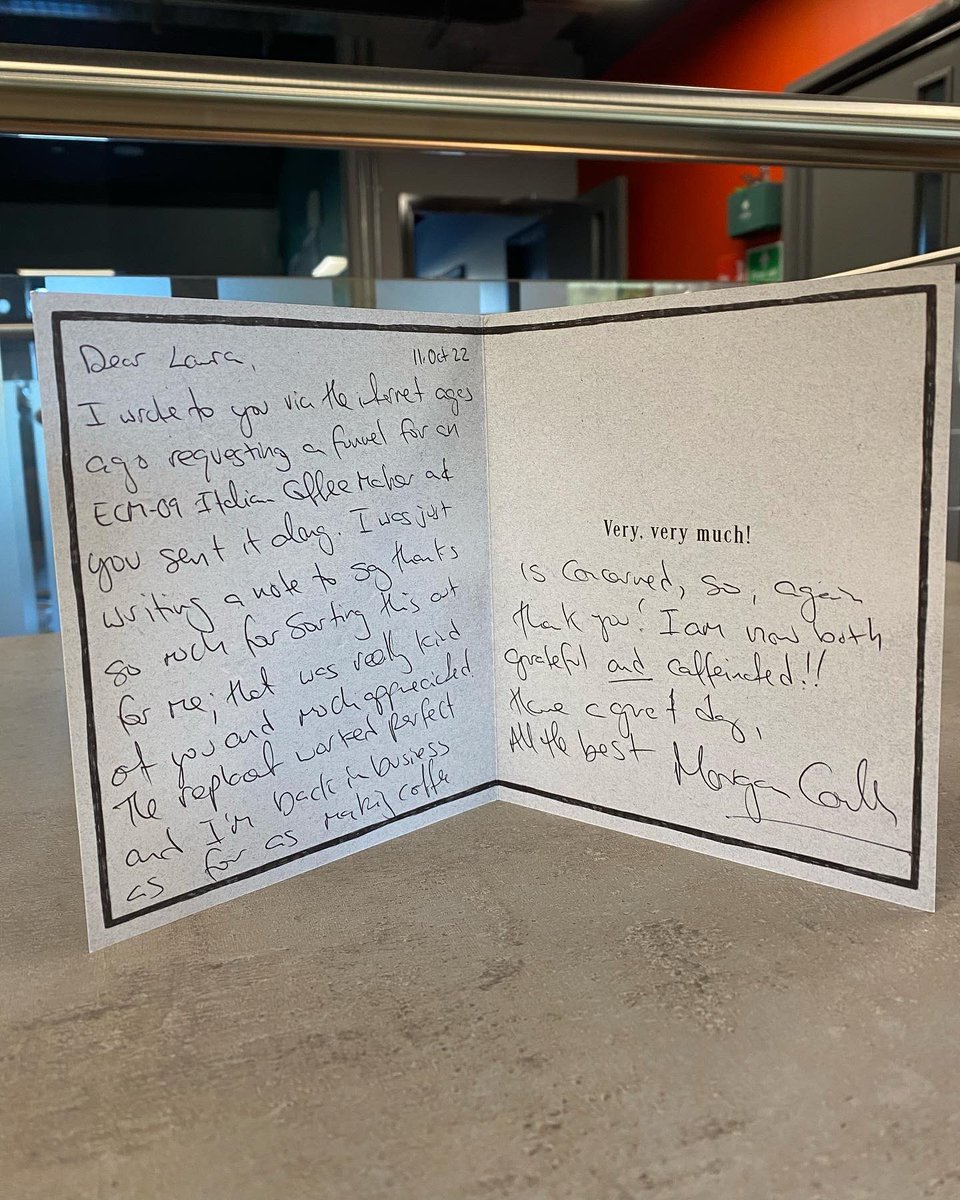 Dear Laura,
11. Oct 22
I wrote to you via the internet ages
ago requesting a funnel for an
ECM-09 Italian Coffee Maker and
you sent it along. I was just
writing a note to say thanks
so much for sorting this out
for me; that was really kind
of you and much appreciated.
The worked perfect
and I'm back in business
as far as making coffee
Very, very much!
is concerned, so, again
thank you! I am now both
grateful and caffeinated!!
Have a great day,
All the best Morgan